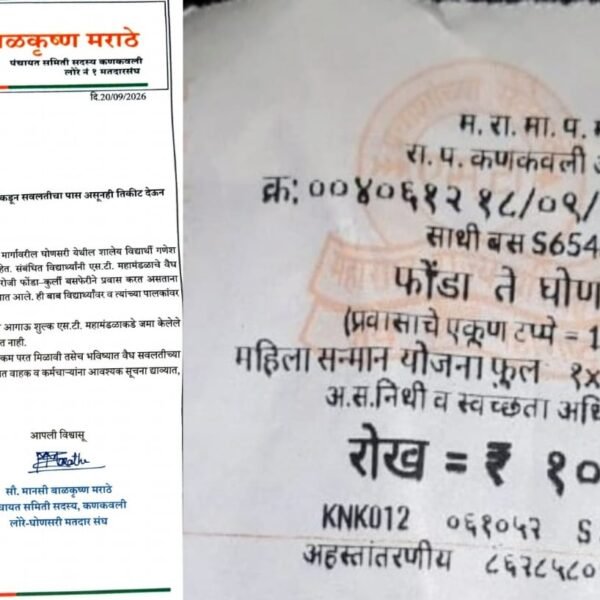 ाळकृष्ण मराठे
पंचायत समिती सदस्य कणकवली
लोरे नं १ मतदारसंघ
दि.20/09/2026
कडून सवलतीचा पास असूनही तिकीट देऊन
मार्गावरील घोणसरी येथील शालेय विद्यार्थी गणेश
हेत. संबंधित विद्यार्थ्यांनी एस.टी. महामंडळाचे वैध
रोजी फोंडा-कुर्ली बसफेरीने प्रवास करत असताना
यात आले. ही बाब विद्यार्थ्यांवर व त्यांच्या पालकांवर
आगाऊ शुल्क एस.टी. महामंडळाकडे जमा केलेले
त नाही.
कम परत मिळावी तसेच भविष्यात वैध सवलतीच्या
त वाहक व कर्मचाऱ्यांना आवश्यक सूचना द्याव्यात,
आपली विश्वासू
सौ. मानसी बाळकृष्ण मराठे
चायत समिती सदस्य, कणकवली
लोरे-घोणसरी मतदार संघ
म. रा. मा. प. म
रा. प. कणकवली
क्र: ००४०६१२ १८/०९/
साधी बस S654
फोंडा ते घोण
(प्रवासाचे एकूण टप्पे = 1
महिला सन्मान योजना फुल १x
अ.स.निधी व स्वच्छता अधि
रोख = ₹ १०
KNK012 ०६१०५२ S
अहस्तांतरणीय ८६२८५८०